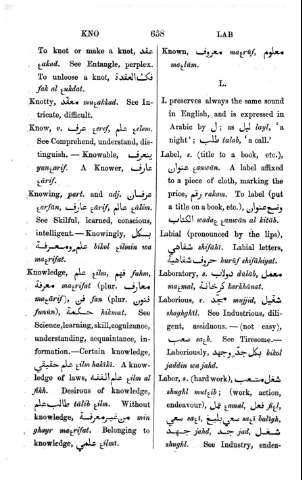 KNO
658
LAB
To knot or make a knot, عقد
ȝakad. See Entangle, perplex.
To unloose a knot, فك العقدة
fak al ȝukdat.
Knotty, معقد muȝakkad. See In-
tricate, difficult.
Know, v. عرف ȝaref, علم ȝalem.
See Comprehend, understand, dis-
tinguish. — Knowable, يتعرف
A Knower, عارف
ȝārif.
Knowing, part. and adj. عرفان
ȝarfān, عارف ȝārif, عالم ȝālim.
See Skilful, learned, conscious,
intelligent.—Knowingly, بكل
علم ومعرفة bikol ȝilmin wa
maȝrifat.
Knowledge, علم ȝilm, فهم fahm,
معرفة maȝrifat (plur. معارف
maȝārif), فن fan (plur. فنون
funūn), حكمة hikmat. See
Science, learning, skill, cognizance,
understanding, acquaintance, in-
formation.—Certain knowledge,
علم حقيقي ȝilm hakīki. A know-
ledge of laws, علم الفقه ȝilm al
fikh. Desirous of knowledge,
طالب علم tālib ȝilm. Without
knowledge, من غير معرفة min
ghayr maȝrifat. Belonging to
knowledge, علمي ȝilmī.
Known, معروف maȝrūf, معلوم
maȝlūm.
L.
L preserves always the same sound
in English, and is expressed in
Arabic by ل; as ليل layl, 'a
night'; طلب talab, 'a call.'
Label, s. (title to a book, etc.),
عنوان ȝanwān. A label affixed
to a piece of cloth, marking the
price, رقم rakam. To label (put
a title on a book, etc.), وضع عنوان
الكتاب wadaȝ ȝanwān al kitāb.
Labial (pronounced by the lips),
شفاهي shifāhī. Labial letters,
حروف شفاهية hurūf shifāhiyat.
Laboratory, s. دولاب dulāb, معمل
maȝmal, كرخانة karkhānat.
Laborious, s. مجد mujjid, شغيل
shaghghīl. See Industrious, dili-
gent, assiduous. — (not easy),
صعب saȝb. See Tiresome.—
Laboriously, بكل جد وجهد bikol
jaddin wa jahd.
Labor, s. (hard work), شغل متعب
shughl mutȝib; (work, action,
endeavour), عمل ȝamal, فعل fiȝl,
سعي saȝi, سعي بليغ saȝi balīgh,
جهد jahd, جد jad, شغل
shughl. See Industry, enden-